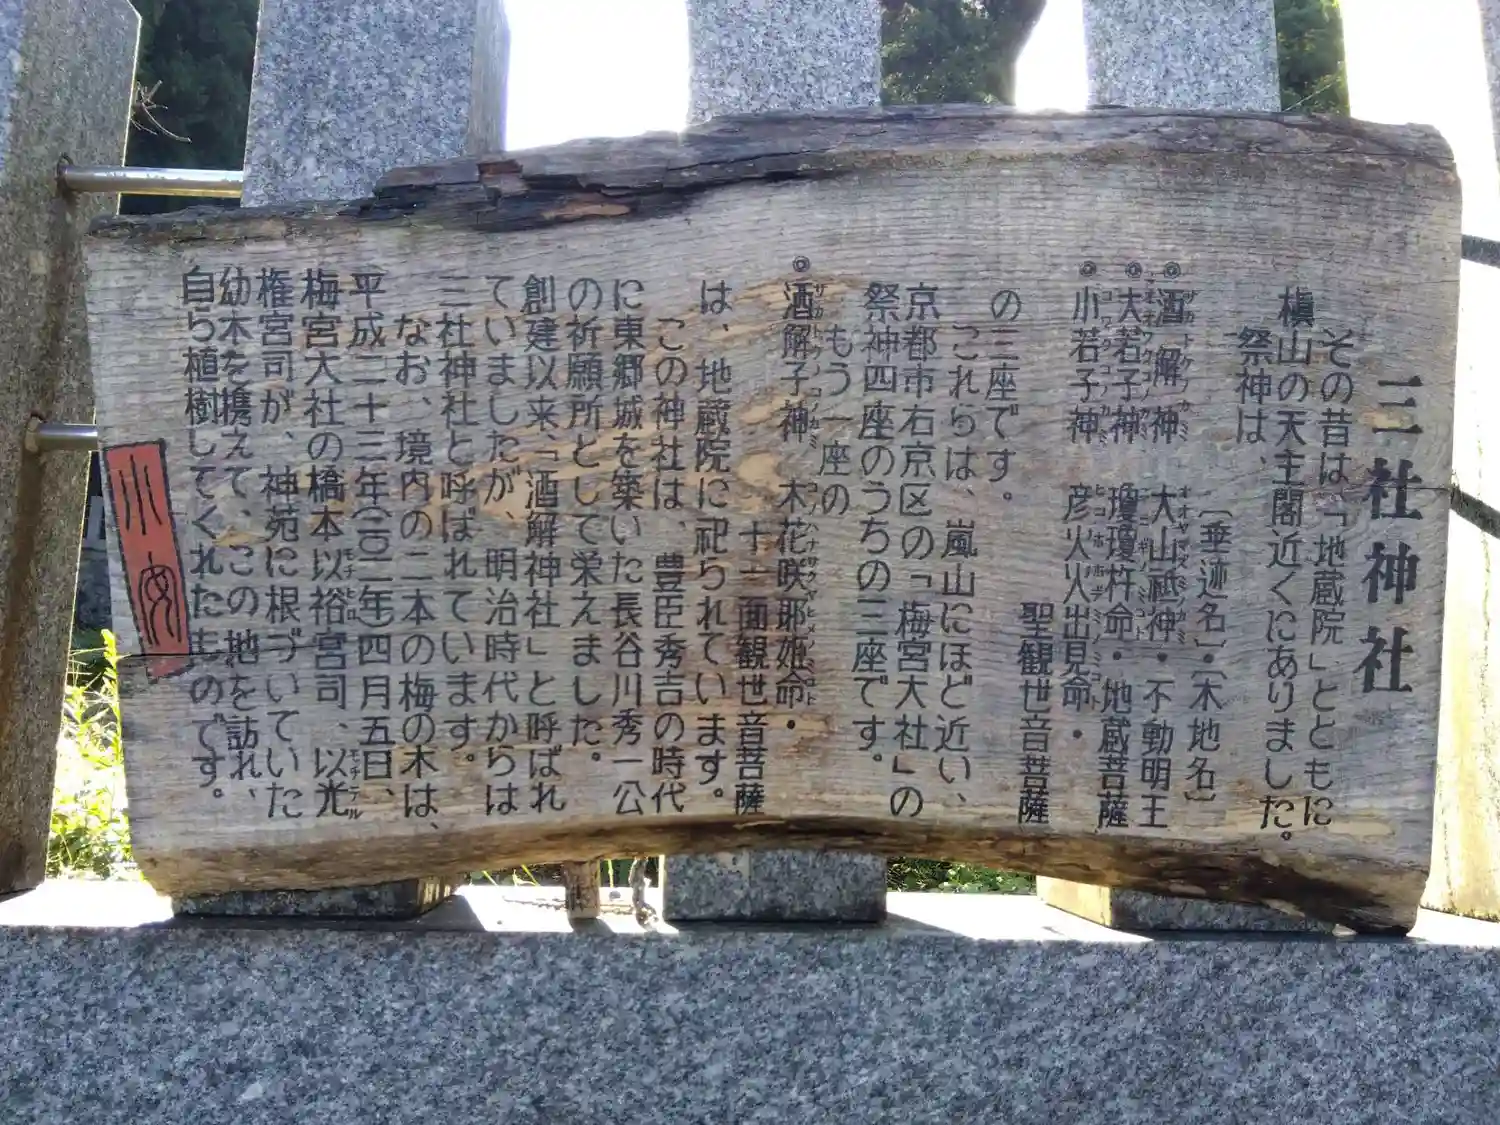 三社神社
その昔は、「地蔵院」とともに
槇山の天主閣近くにありました。
祭神は、
〔垂迹名〕・〔本地名〕
◎酒解神 大山祗神・不動明王
◎大若子神 瓊瓊杵命・地蔵菩薩
◎小若子神 彦火火出見命・
聖観世音菩薩
の三座です。
これらは、嵐山にほど近い、
京都市右京区の「梅宮大社」の
祭神四座のうちの三座です。
もう一座の
◎酒解子神 木花咲耶姫命・
十一面観世音菩薩
は、地蔵院に祀られています。
この神社は、豊臣秀吉の時代
に東郷城を築いた長谷川秀一公
の祈願所として栄えました。
創建以来、「酒解神社」と呼ばれ
ていましたが、明治時代からは
三社神社と呼ばれています。
なお、境内の二本の梅の木は、
平成二十三年(二〇一一年)四月五日、
梅宮大社の橋本以裕宮司、以光
権宮司が、神苑に根づいていた
幼木を携えて、この地を訪れ、
自ら植樹してくれたものです。